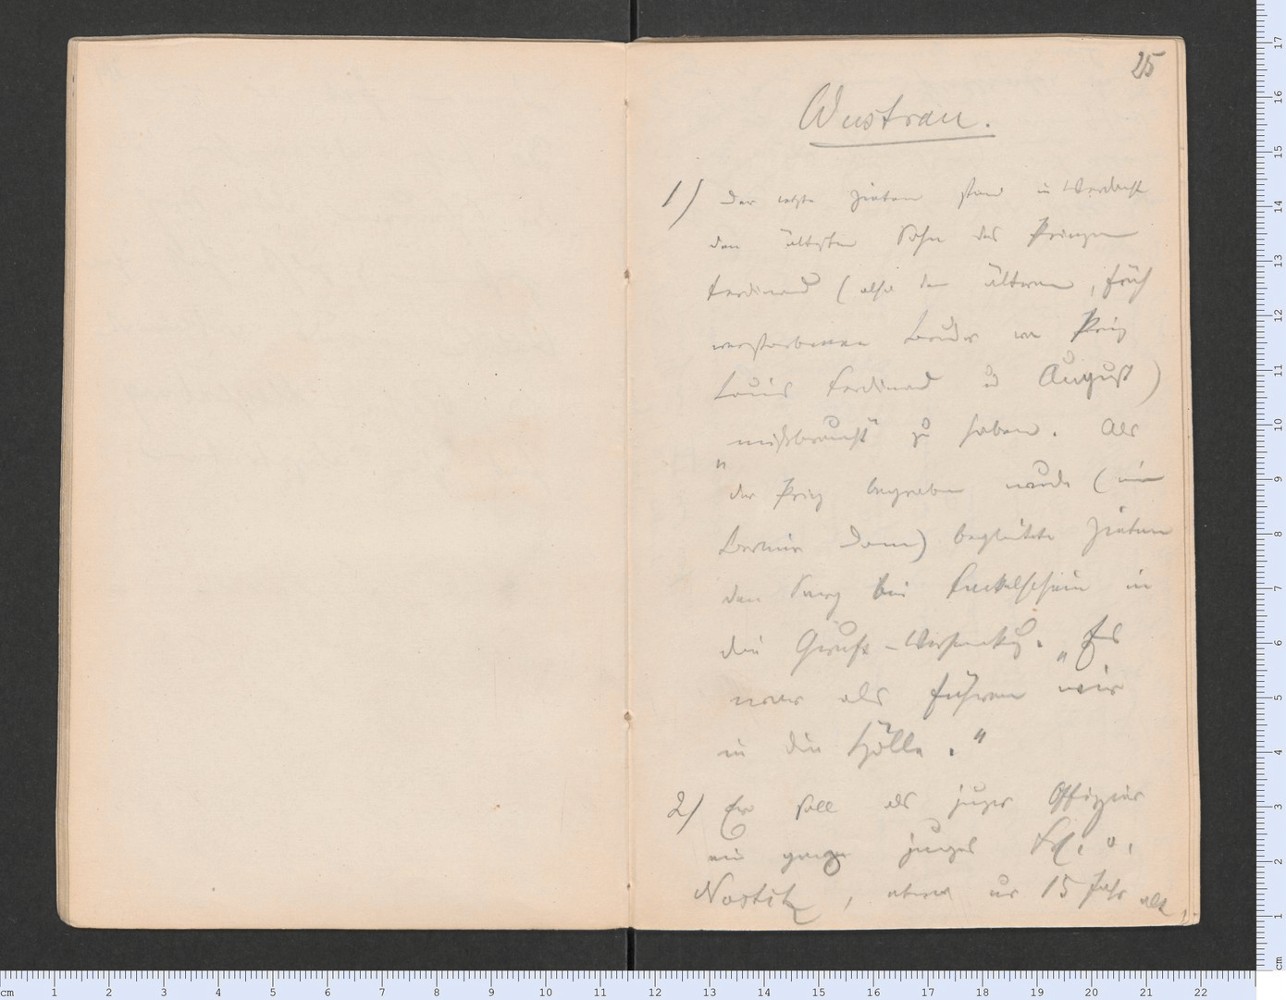 25
Wustrau.
1) Der letzte Zieten stand in Verdacht
den ältesten Sohn des Prinzen
Ferdinand (also den älteren, früh
verstorbenen Bruder von Prinz
Louis Ferdinand u August)
„mißbraucht“ zu haben. Als
der Prinz begraben wurde (im
Berliner Dom) begleitete Zieten
den Sarg bei Fackelschein in
die Gruft-Versenkung. „Es
war als führen wir
in die Hölle.“
2) Er soll als junger Offizier
ein ganz junges Frl. v.
Nostitz, etwa erst 15 Jahr alt,